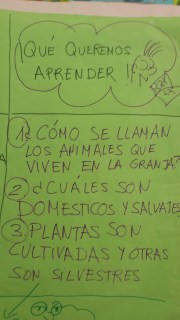 ¡QUÉ QUEREMOS
APRENDER!
1 ¿CÓMO SE LLAMAN
LOS ANIMALES QUE
VIVEN EN LA GRANJA?
2 ¿CUÁLES SON
DOMESTICOS Y SALVAJES
3 PLANTAS SON
CULTIVADAS Y OTRAS
SON SILVESTRES